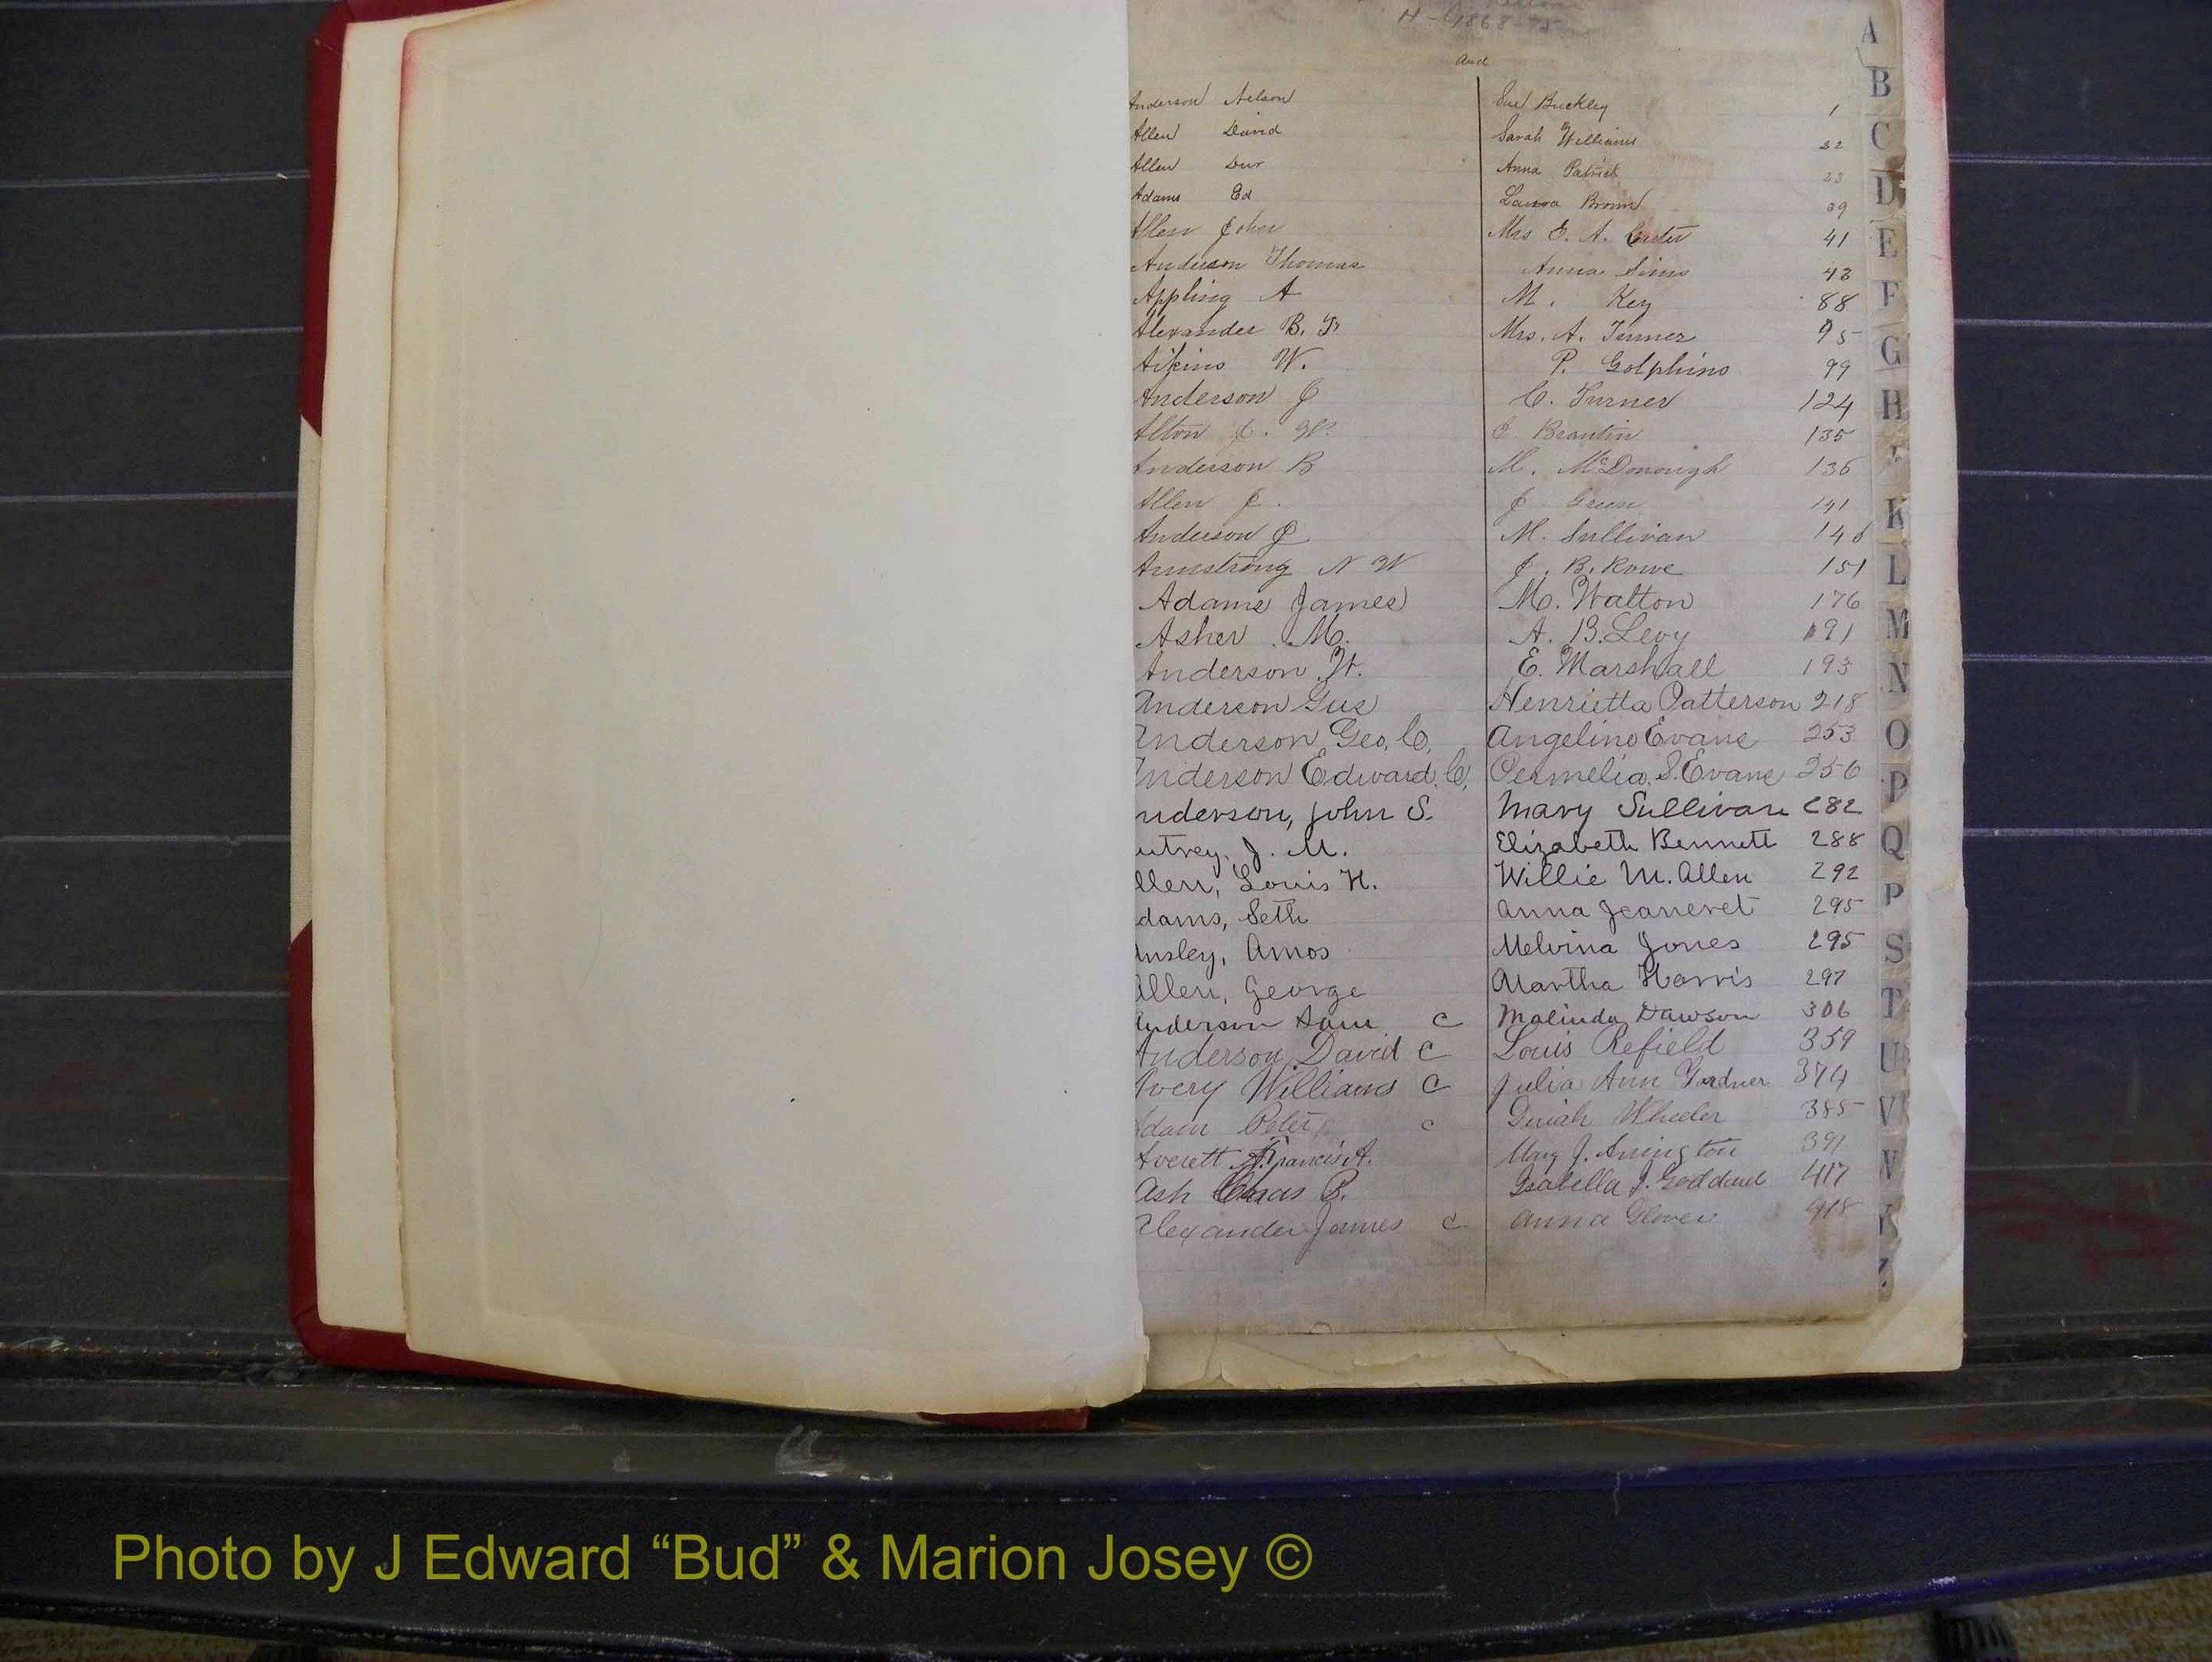 H - 1868-75
and
Anderson Nelson Sue Buckley 1
Allen David Sarah Williams 22
Allen Dur Anna Patrick 23
Adams Ed Laura Brown 39
Allen John Mrs E. A. Carter 41
Anderson Thomas Anna Sims 43
Appling A M. Key 88
Alexander B. F. Mrs. A. Turner 95
Aikins W. P. Golphins 99
Anderson J C. Turner 124
Alton J. W. E Brantin 135
Anderson B M. McDonough 136
Allen J. J Green 141
Anderson J M. Sullivan 146
Armstrong N W J. B. Rowe 151
Adams James M. Walton 176
Asher M. A. B. Levy 191
Anderson W. E. Marshall 193
Anderson Gus Henrietta Patterson 218
Anderson Geo. C. Angeline Evans 253
Anderson Edward. C. Permelia. S. Evans 256
nderson, John S. Mary Sullivan 282
utrey, J. M. Elizabeth Bennett 288
llen, Louis H. Willie M. Allen 292
dams, Seth Anna Jeaneret 295
Ansley, Amos Melvina Jones 295
Allen, George Martha Harris 297
Anderson Sam c Malinda Dawson 306
Anderson, David c Louis Refield 359
Avery Williams c Julia Ann Gardner 374
Adam Peter c Wheeler 385
Averett Francis A. Mary J. Arrington 391
Ash Chas B. Isabella J. Goddard 417
Alexander James c Anna Glover 418
A
B
C
D
E
F
G
H
K
L
M
N
O
P
Q
P
S
T
U
V
Z
Photo by J Edward “Bud” & Marion Josey ©